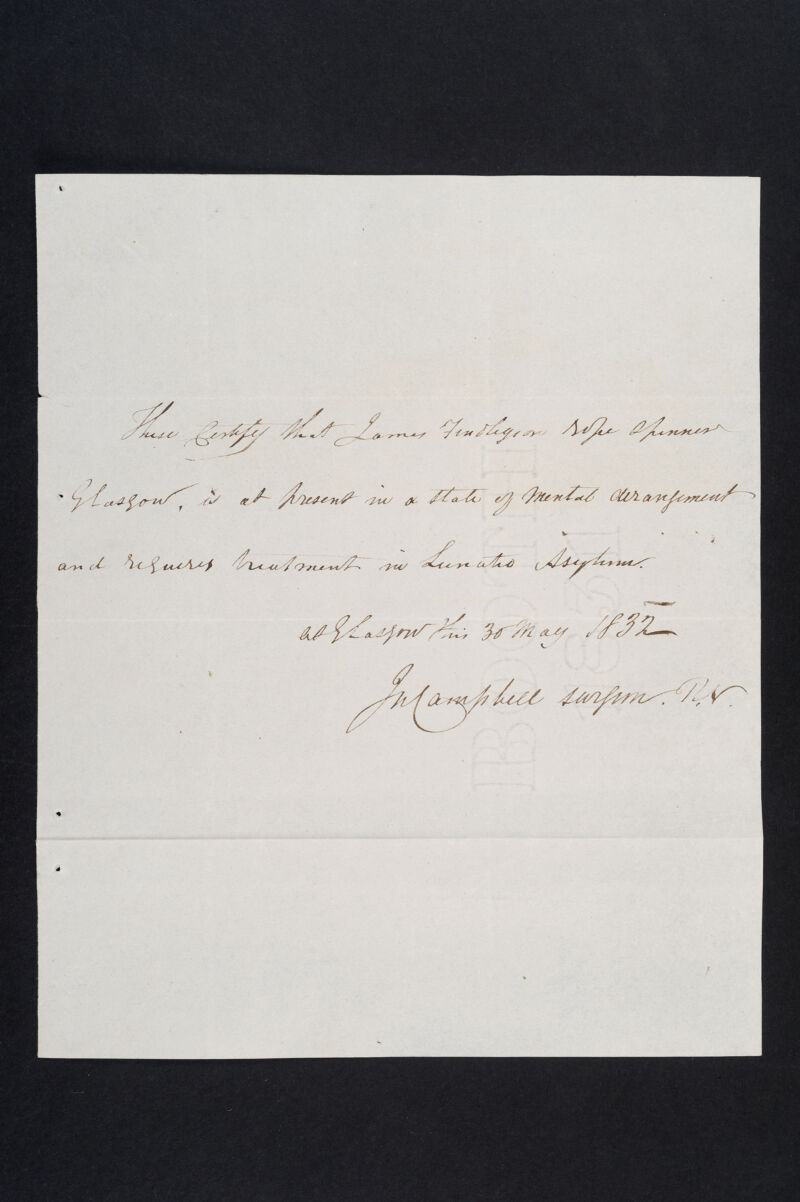 These Certify that James Findlayson rope spinner
Glasgow, is at present in a state of Mental derangement
and requires treatment in Lunatic Asylum.
at Glasgow this 30 May 1832
Jn Campbell surgeon. R.N.
BOOTH
1831